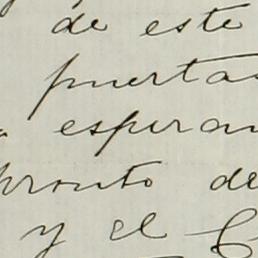 de este
puertas
esperan
pronto de
y el